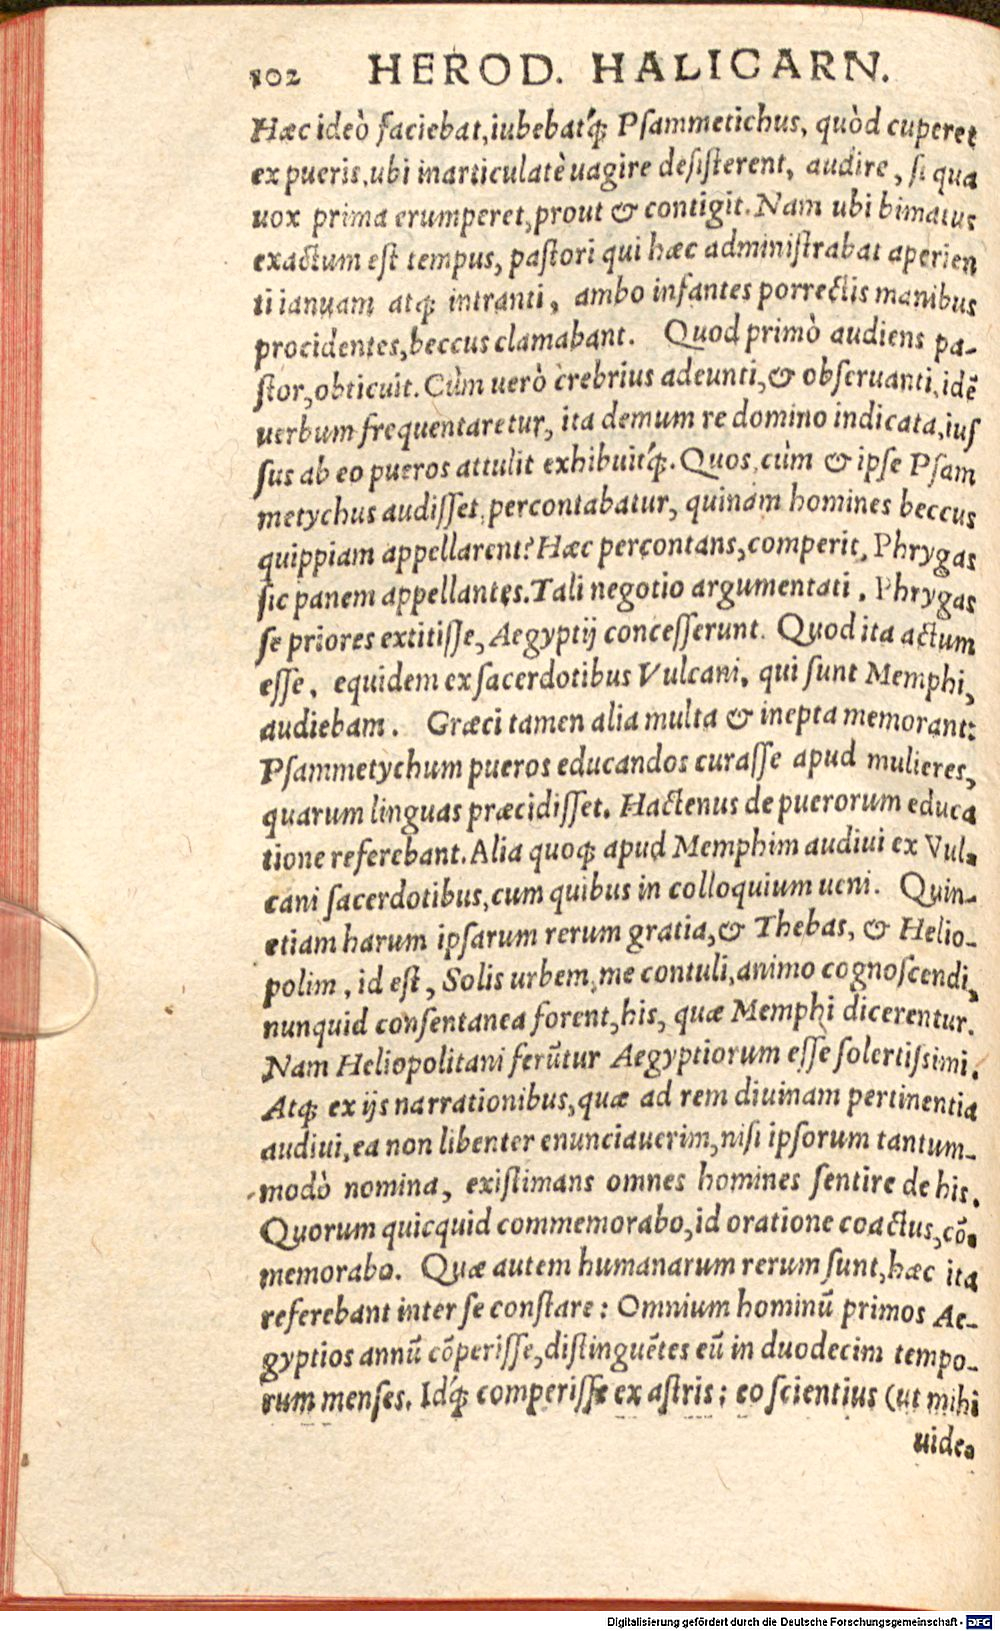 102 HEROD. HALICARN.
Hæc ideò faciebat, iubebatq́ꝫ Psammetichus, quòd cuperet
ex pueris, ubi inarticulatè uagire desisterent, audire, si qua
uox prima erumperet, prout & contigit. Nam ubi bimatus
exactum est tempus, pastori qui hæc administrabat aperien
ti ianuam atqꝫ intranti, ambo infantes porrectis manibus
procidentes, beccus clamabant. Quod primò audiens pa-
stor, obticuit. Cùm uerò crebrius adeunti, & obseruanti, idē
uerbum frequentaretur, ita demum re domino indicata, ius
sus ab eo pueros attulit exhibuitq́ꝫ. Quos, cùm & ipse Psam
metychus audisset, percontabatur, quinam homines beccus
quippiam appellarent? Hæc percontans, comperit, Phrygas
sic panem appellantes. Tali negotio argumentati, Phrygas
se priores extitisse, Aegyptij concesserunt. Quod ita actum
esse, equidem ex sacerdotibus Vulcani, qui sunt Memphi,
audiebam. Græci tamen alia multa & inepta memorant:
Psammetychum pueros educandos curasse apud mulieres,
quarum linguas præcidisset. Hactenus de puerorum educa
tione referebant. Alia quoqꝫ apud Memphim audiui ex Vul-
cani sacerdotibus, cum quibus in colloquium ueni. Quin-
etiam harum ipsarum rerum gratia, & Thebas, & Helio-
polim, id est, Solis urbem, me contuli, animo cognoscendi,
nunquid consentanea forent, his, quæ Memphi dicerentur.
Nam Heliopolitani ferūtur Aegyptiorum esse solertissimi.
Atqꝫ ex ijs narrationibus, quæ ad rem diuinam pertinentia
audiui, ea non libenter enunciauerim, nisi ipsorum tantum-
modò nomina, existimans omnes homines sentire de his.
Quorum quicquid commemorabo, id oratione coactus, cō-
memorabo. Quæ autem humanarum rerum sunt, hæc ita
referebant inter se constare: Omnium hominū primos Ae-
gyptios annū cōperisse, distinguētes eū in duodecim tempo-
rum menses. Idq́ꝫ comperisse ex astris: eo scientius (ut mihi
uide-
Digitalisierung gefördert durch die Deutsche Forschungsgemeinschaft - DFG